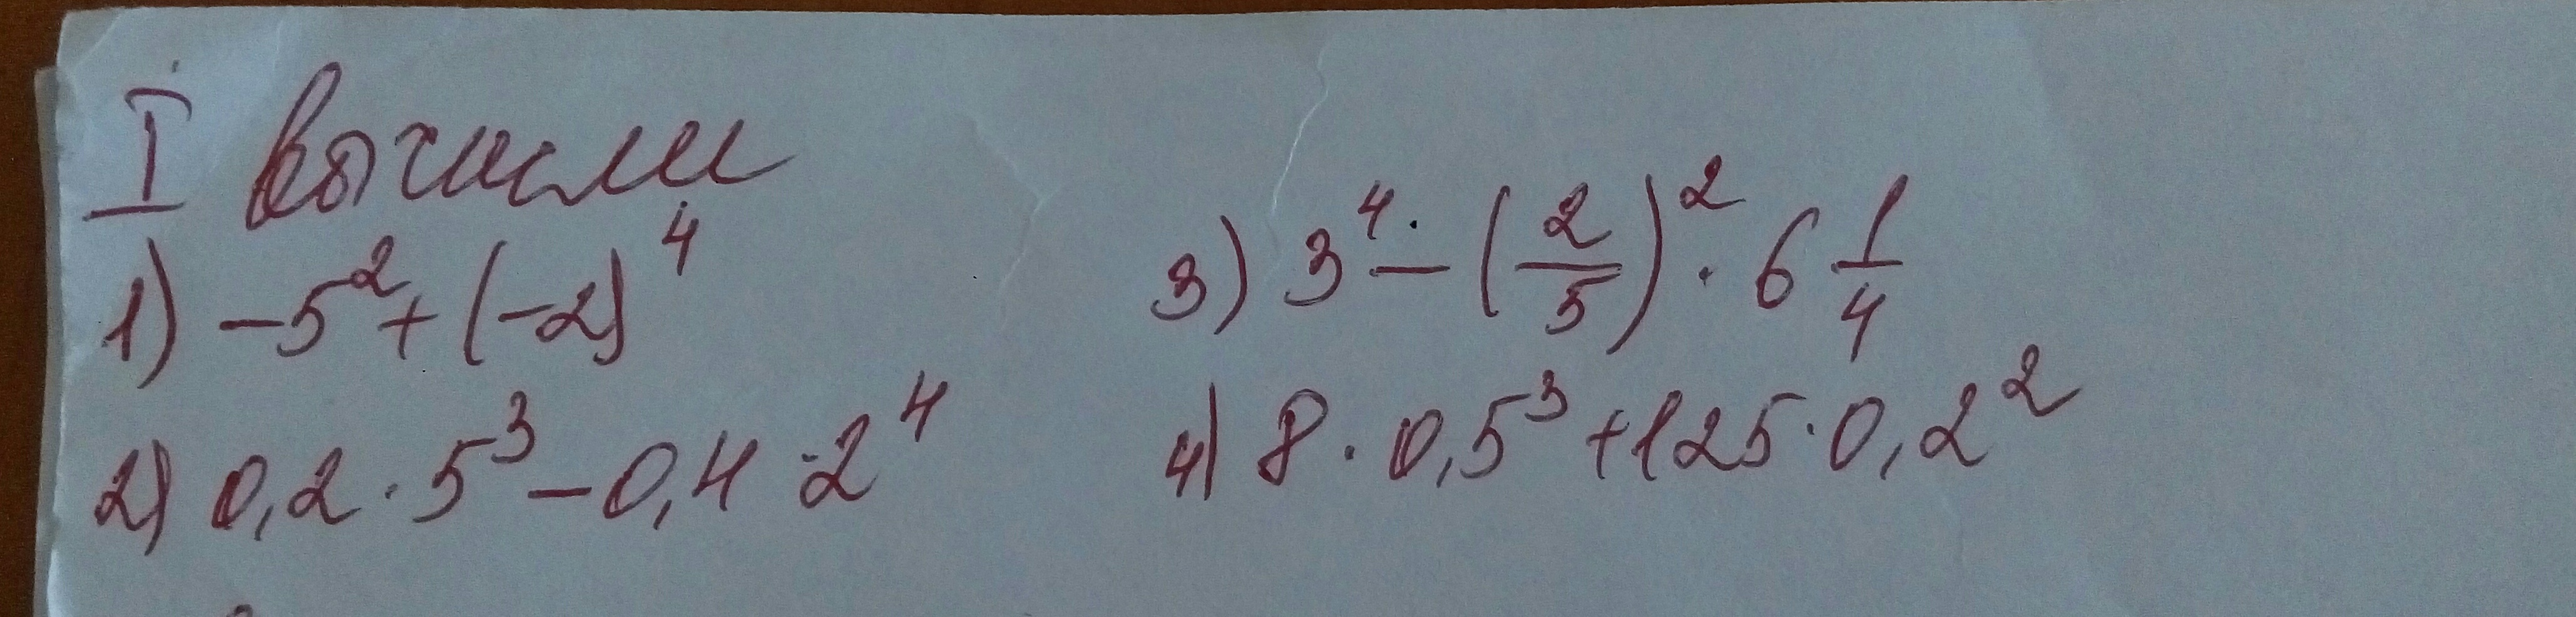 I Вычисли
1) -5² + (-2)⁴
2) 0,2 · 5³ - 0,4 · 2⁴
3) 3⁴ - (2/5)² · 6 1/4
4) 8 · 0,5³ + 125 · 0,2²